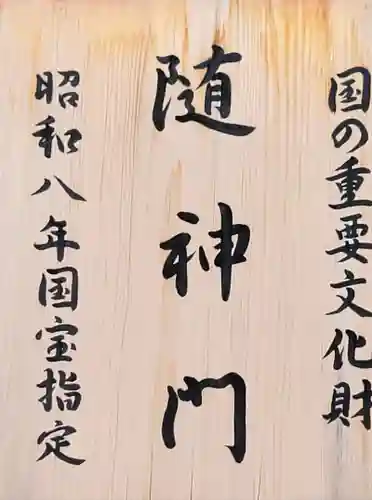 国の重要文化財
随神門
昭和八年国宝指定